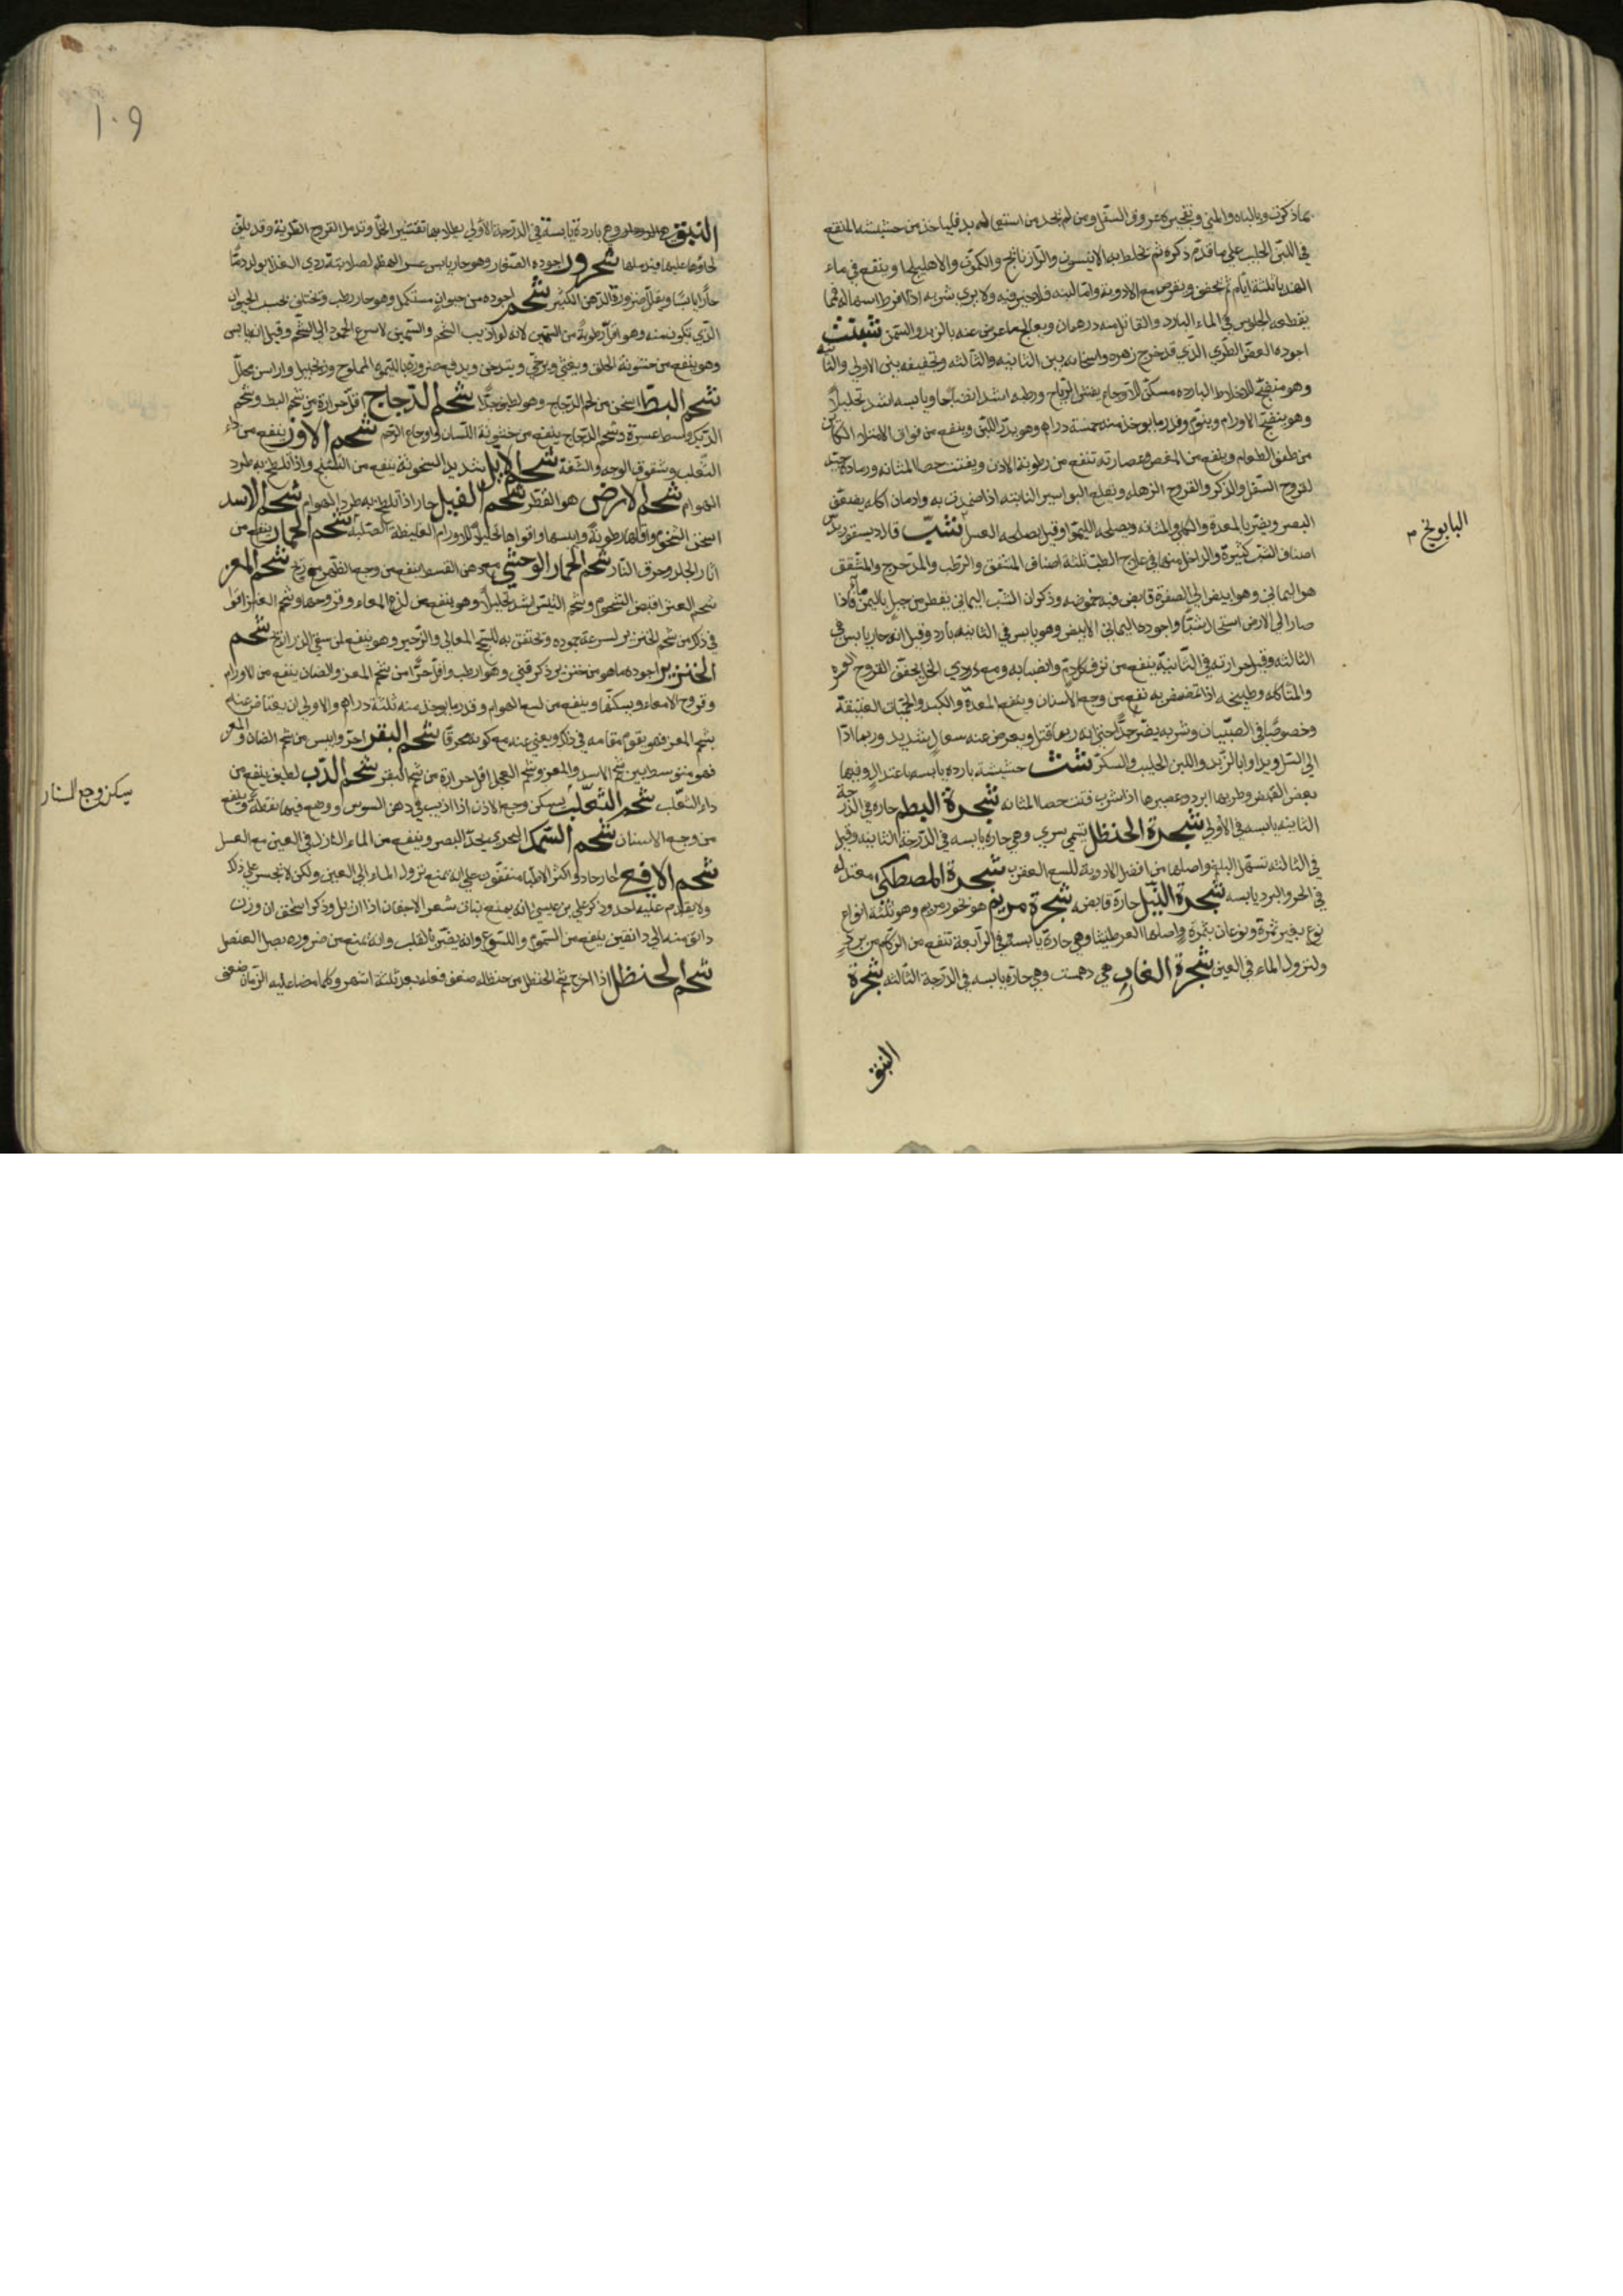 بما ذكرت وبالباه والمني وتفجيره عروق السفل ومن لم يجد من استعماله بد فليأخذ من حشيشه المنقع
في اللبن الحليب على ما قدم ذكره ثم يخلط بها الانيسون والرازيانج والكمون والاهليلج وينقع في ماء
الهندبا ثلثة ايام ثم يجفف ويقرص مع الادوية واما لبنه فلا خير فيه ولا يرى شربه اذا افرط اسهاله فما
يقطعه الجلوس في الماء البارد والقاتل منه درهمان ويعالج ما عرض عنه بالزبد والسمن شبت
اجوده الغض الطري الذي قد خرج زهره واسخانه بين الثانيه والثالثه وتجفيفه بين الاولى والثانيه
وهو منضج للاخلاط البارده مسكن للاوجاع يفش الرياح ورطبه اشد انضاجا ويابسه اشد تحليلا
وهو ينضج الاورام وينوم وقدر ما يوخذ منه خمسة دراهم وهو يدر اللبن وينفع من فواق الامتلاء الكائن
من طفو الطعام وينفع من المغص وعصارته تنفع من رطوبة الاذن ويفتت حصا المثانه ورماده جيد
لقروح السفل والذكر والقروح الرهله ويقلع البواسير النابته اذا ضمدت به وادمان اكله يضعف
البصر ويضر بالمعدة والكلى والمثانه ويصلحه الليمو وقيل يصلحه العسل شب قال ديسقوريدس
اصناف الشب كثيرة والداخل منها في علاج الطب ثلثة اصناف المشقق والرطب والمدحرج والمشقق
هو اليماني وهو ابيض الى الصفرة قابض فيه حموضه وذكر ان الشب اليماني يقطر من جبل باليمن ماء فاذا
صار الى الارض استحال شبا واجوده اليماني الابيض وهو يابس في الثانيه بارد وقيل انه حار يابس في
الثالثه وقيل حرارته في الثانية ينفع من نزف كل دم وانصبابه ومع دردي الخل يجفف القروح العسره
والمتاكله وطبيخه اذا تمضمض به نفع من وجع الاسنان وينفع المعدة والكبد والحميات العتيقة
وخصوصا في الصبيان وشربه يضر جدا حتى انه ربما قتل ويعرض عنه سعال شديد وربما ادا
الى السل ويداوا بالزبد واللبن الحليب والسكر شث حشيشة بارده يابسه باعتدال وفيها
بعض القبض وطريها ابرد وعصيرها اذا شرب فتت حصا المثانه شجرة البطم حاره في الدرجة
الثانيه يابسه في الاولى شجرة الحنظل تسمى سري وهي حاره يابسه في الدرجة الثانيه وقيل
في الثالثه تسهل البلغم واصلها من افضل الادوية للسع العقرب شجرة المصطكي معتدله
في الحر والبرد يابسه شجرة النيل حارة قابضه شجرة مريم هو بخور مريم وهو ثلثة انواع
نوع بغير ثمرة ونوعان بثمرة واصلها العرطنيثا وهي حارة يابسة في الرابعة تنفع من الزكام من برد
ولنزول الماء في العين شجرة الغار هي دهمست وهي حارة يابسه في الدرجة الثالثه شجرة
البق
البابونج م
١٠٩
البق وهي باردة يابسة في الدرجة الاولى
لحاؤها عليها فيدملها شحرور اجوده الصغار وهو حار يابس عسر الهضم لصلابته ردي الغذا يولد دما
حارا يابسا ويقلل ضرره الدهن الكثير شحم اجوده من حيوان مستكمل وهو حار رطب ويختلف بحسب الحيوان
الذي تكون منه وهو اقل رطوبة من السمين لانه لو اذيب الشحم والسمين لاسرع الجمود الى الشحم وقيل انه يابس
وهو ينفع من خشونة الحلق ويغثي ويرخي ويتدخن ويدفع ضرره بالليمو المملوح وزنجبيل
شحم البط اسخن من شحم الدجاج وهو لطيف جدا شحم الدجاج اقل حرارة من شحم البط وشحم
الديك وشحم الدجاج ينفع من خشونة اللسان واوجاع الرحم شحم الاوز ينفع من داء
الثعلب وشقوق الوجه والشفة شحم الايل شديد السخونة ينفع من التشنج واذا تلطخ به طرد
الهوام شحم الارض هو الفطر شحم الفيل حار اذا تلطخ به طرد الهوام شحم الاسد
اسخن الشحوم واقلها رطوبة وايبسها واقواها تحليلا للاورام الغليظة الصلبه شحم الحمار ينفع من
اثار الجلد وحرق النار شحم الحمار الوحشي مع دهن القسط ينفع من وجع الظهر مع ريح شحم المعز
شحم العنز اقبض الشحوم وشحم التيس اشد تحليلا وهو ينفع من لذع المعاء وقروحها وشحم العنز اقوى
في ذلك من شحم الخنزير لسرعة جموده وتحتقن به للسحج المعائي والزحير وهو ينفع لمن سقي الذراريح شحم
الخنزير اجوده ما هو من خنزير ذكر فتي وهو ارطب واقل حرا من شحم المعز والضان ينفع من الاورام
وقروح الامعاء ويسكنها وينفع من لسع الهوام وقدر ما يوخذ منه ثلثة دراهم والاولى ان يعتاض عنه
بشحم المعز فهو يقوم مقامه في ذلك ويغني عنه مع كونه محرما شحم البقر احر وايبس من شحم الضان والمعز
فهو متوسط بين شحم الاسد والمعز وشحم العجل اقل حرارة من شحم البقر شحم الدب لطيف ينفع من
داء الثعلب شحم الثعلب يسكن وجع الاذن اذا اذيب في دهن السوسن ووضع فيها نقطة وينفع
من وجع الاسنان شحم السمك البحري يحد البصر وينفع من الماء النازل في العين مع العسل
شحم الافعى حار حاد واكثر الاطباء متفقون على انه يمنع نزول الماء الى العين ولكن لا تجسر على ذلك
ولا يقدم عليه احد وذكر علي بن عيسى انه يمنع نبات شعر الاجفان اذا وذكر اسحق ان وزن
دانق منه الى دانقين ينفع من السموم واللسوع وانه يضر بالقلب وانه يمنع من ضرره بصل العنصل
شحم الحنظل اذا اخرج شحم الحنظل من حنظله ضعف فعله بعد ثلثة اشهر وكلما مضا عليه الزمان ضعف
يسكن وجع الاسنان